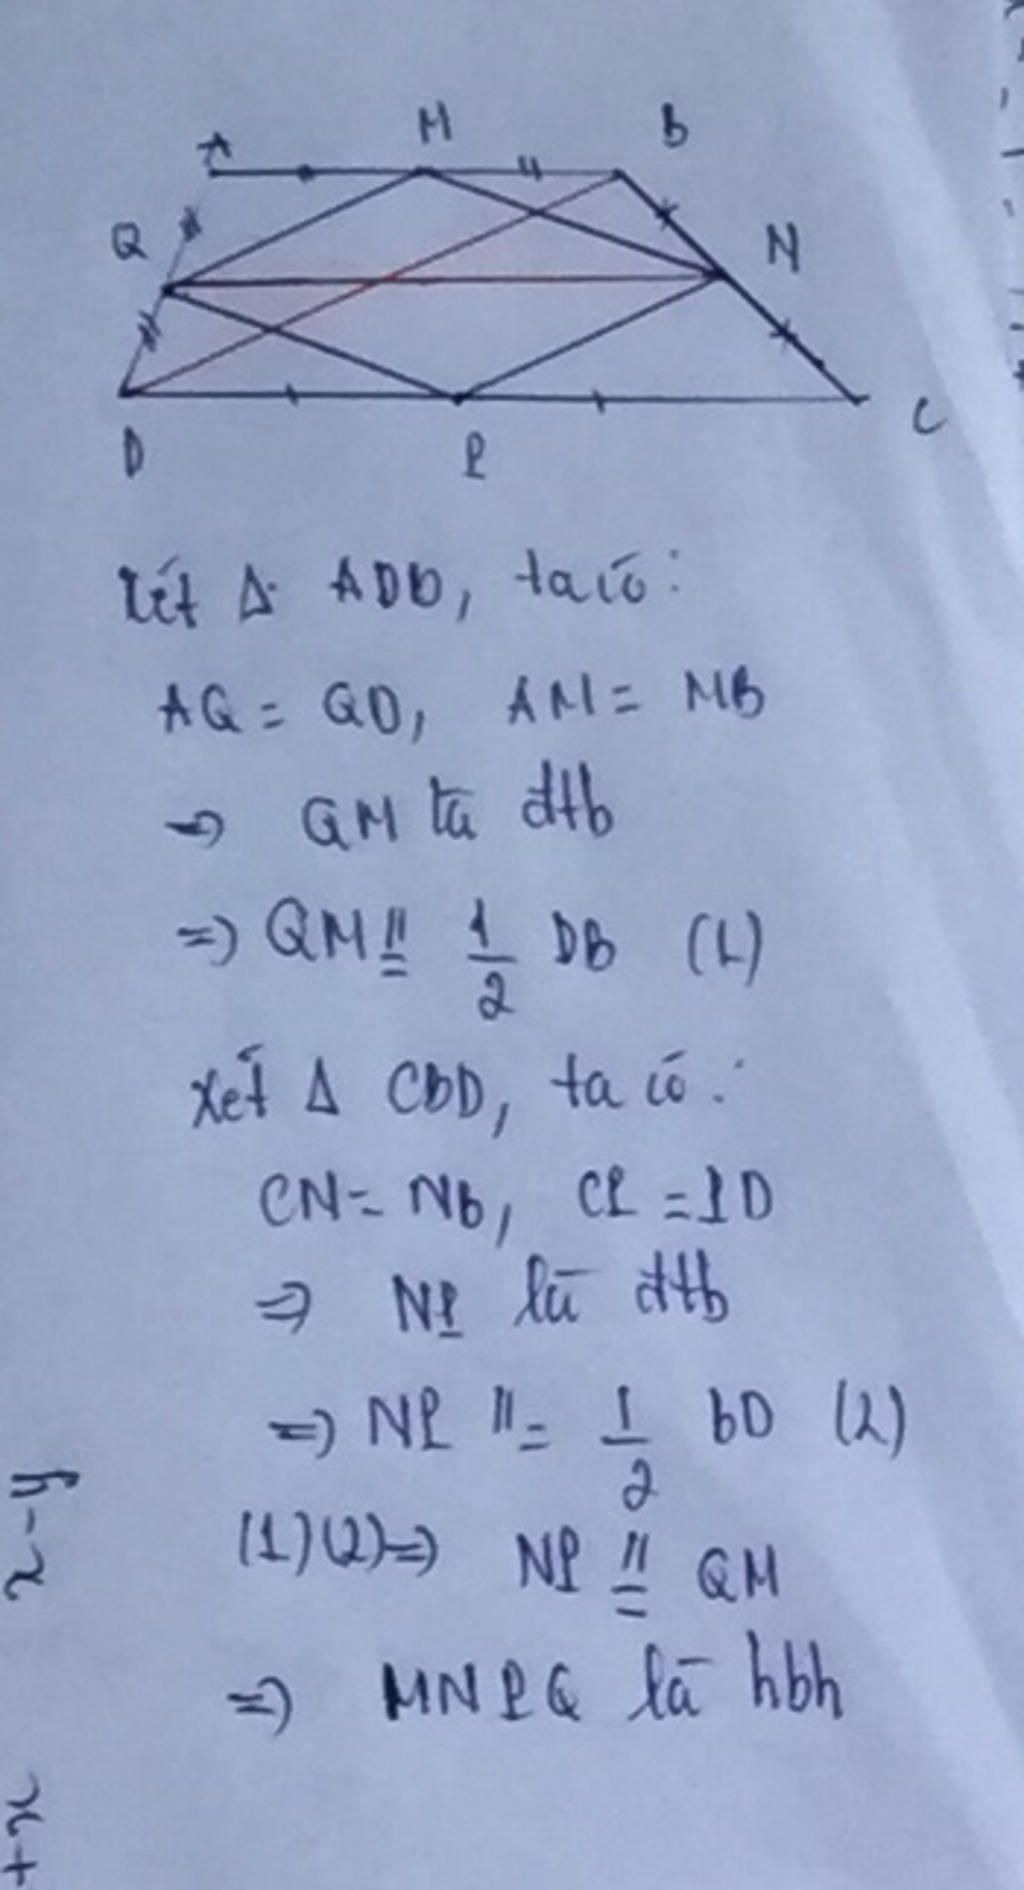 A M B
Q N
D P C
Xét Δ ADB, ta có:
AQ = QD, AM = MB
=> QM là đtb
=> QM // = 1/2 DB (1)
Xét Δ CBD, ta có:
CN = NB, CP = PD
=> NP là đtb
=> NP // = 1/2 BD (2)
(1)(2) => NP // = QM
=> MNPQ là hbh
x - y
x +